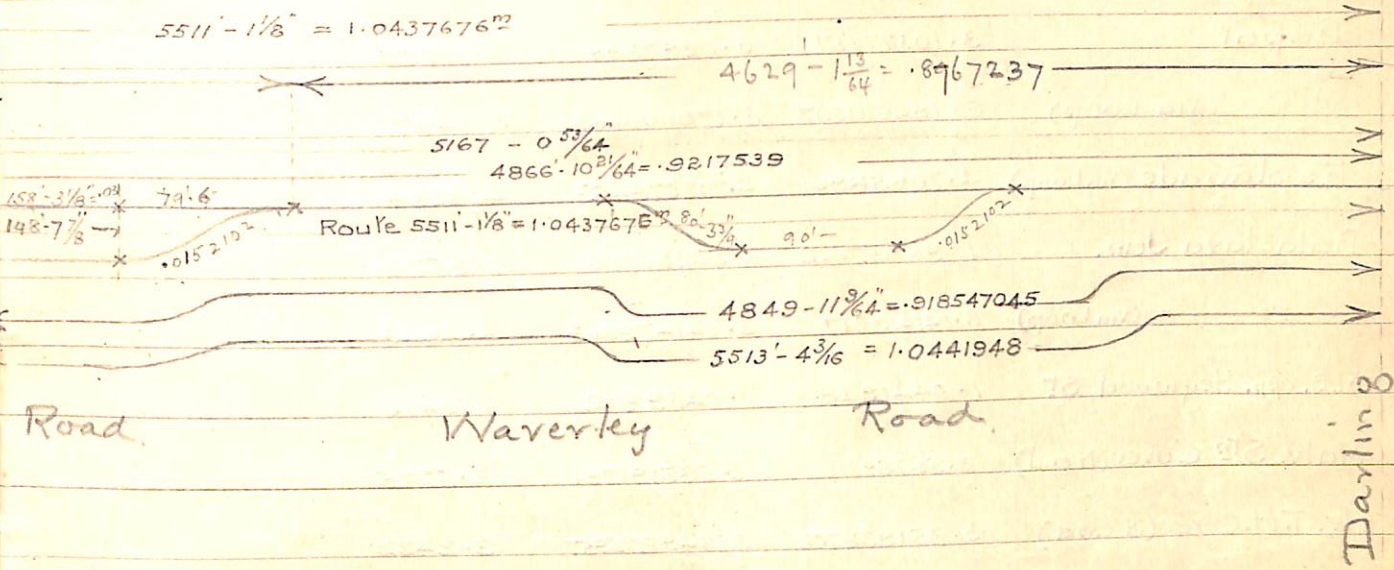 5511' - 1 1/8" = 1.0437676m
4629' - 1 13/64 = .8967237
5167 - 0 53/64"
4866' - 10 21/64" = .9217539
158' - 3 1/8" =
79'.6
148'-7 7/8" →
.0152102
Route 5511' - 1 1/8" = 1.0437676m
80'-3 3/4
90' -
.0152102
4849 - 11 9/64" = .918547045
5513' - 4 3/16 = 1.0441948
Road
Waverley
Road
Darling